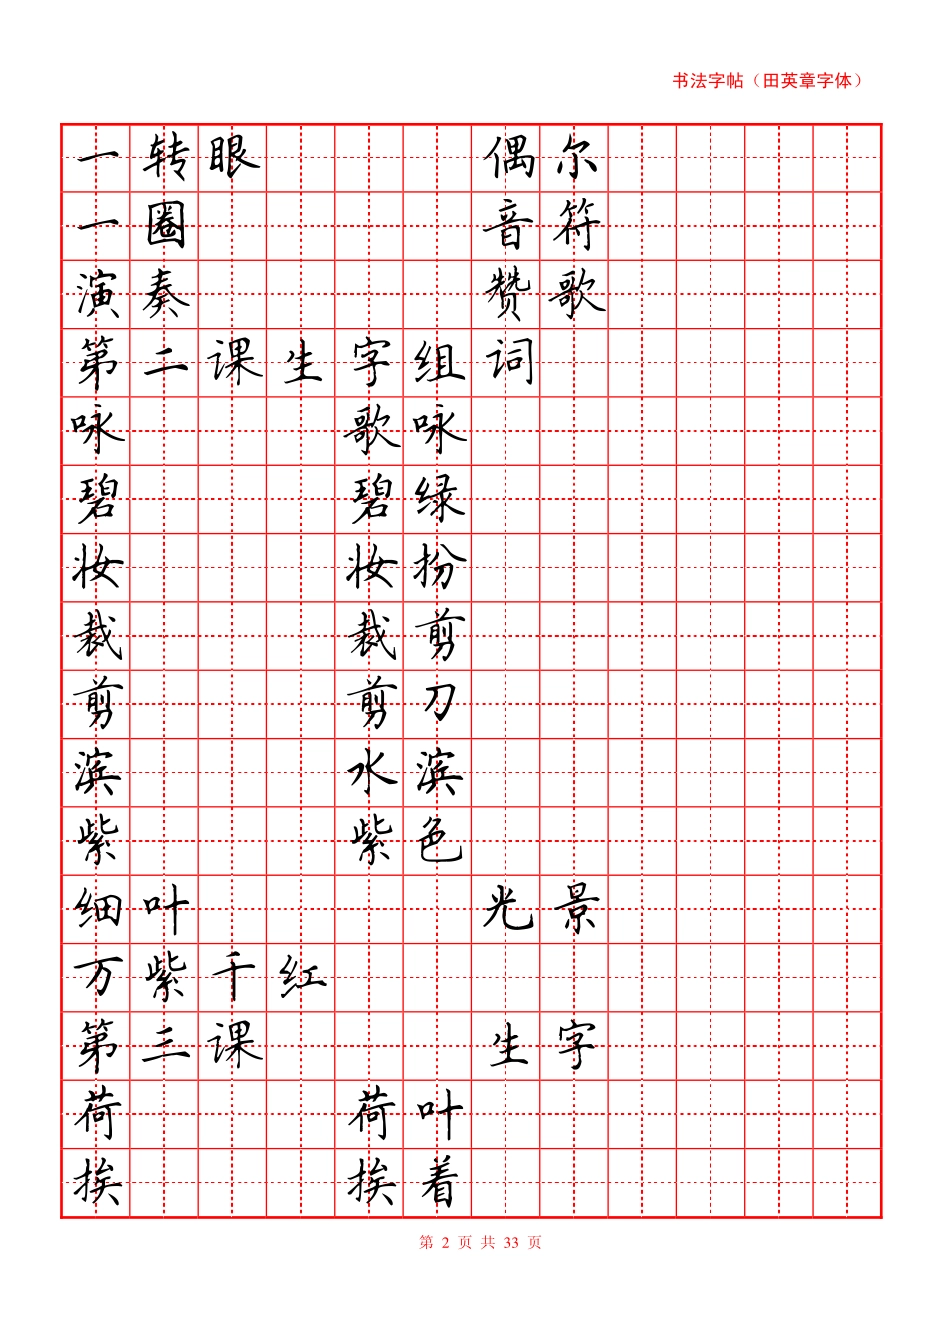 书法字帖（田英章字体）
一转眼 偶尔
一圈 音符
演奏 赞歌
第二课生字组词
咏 歌咏
碧 碧绿
妆 妆扮
裁 裁剪
剪 剪刀
滨 水滨
紫 紫色
细叶 光景
万紫千红
第三课 生字
荷 荷叶
挨 挨着
第 2 页 共 33 页